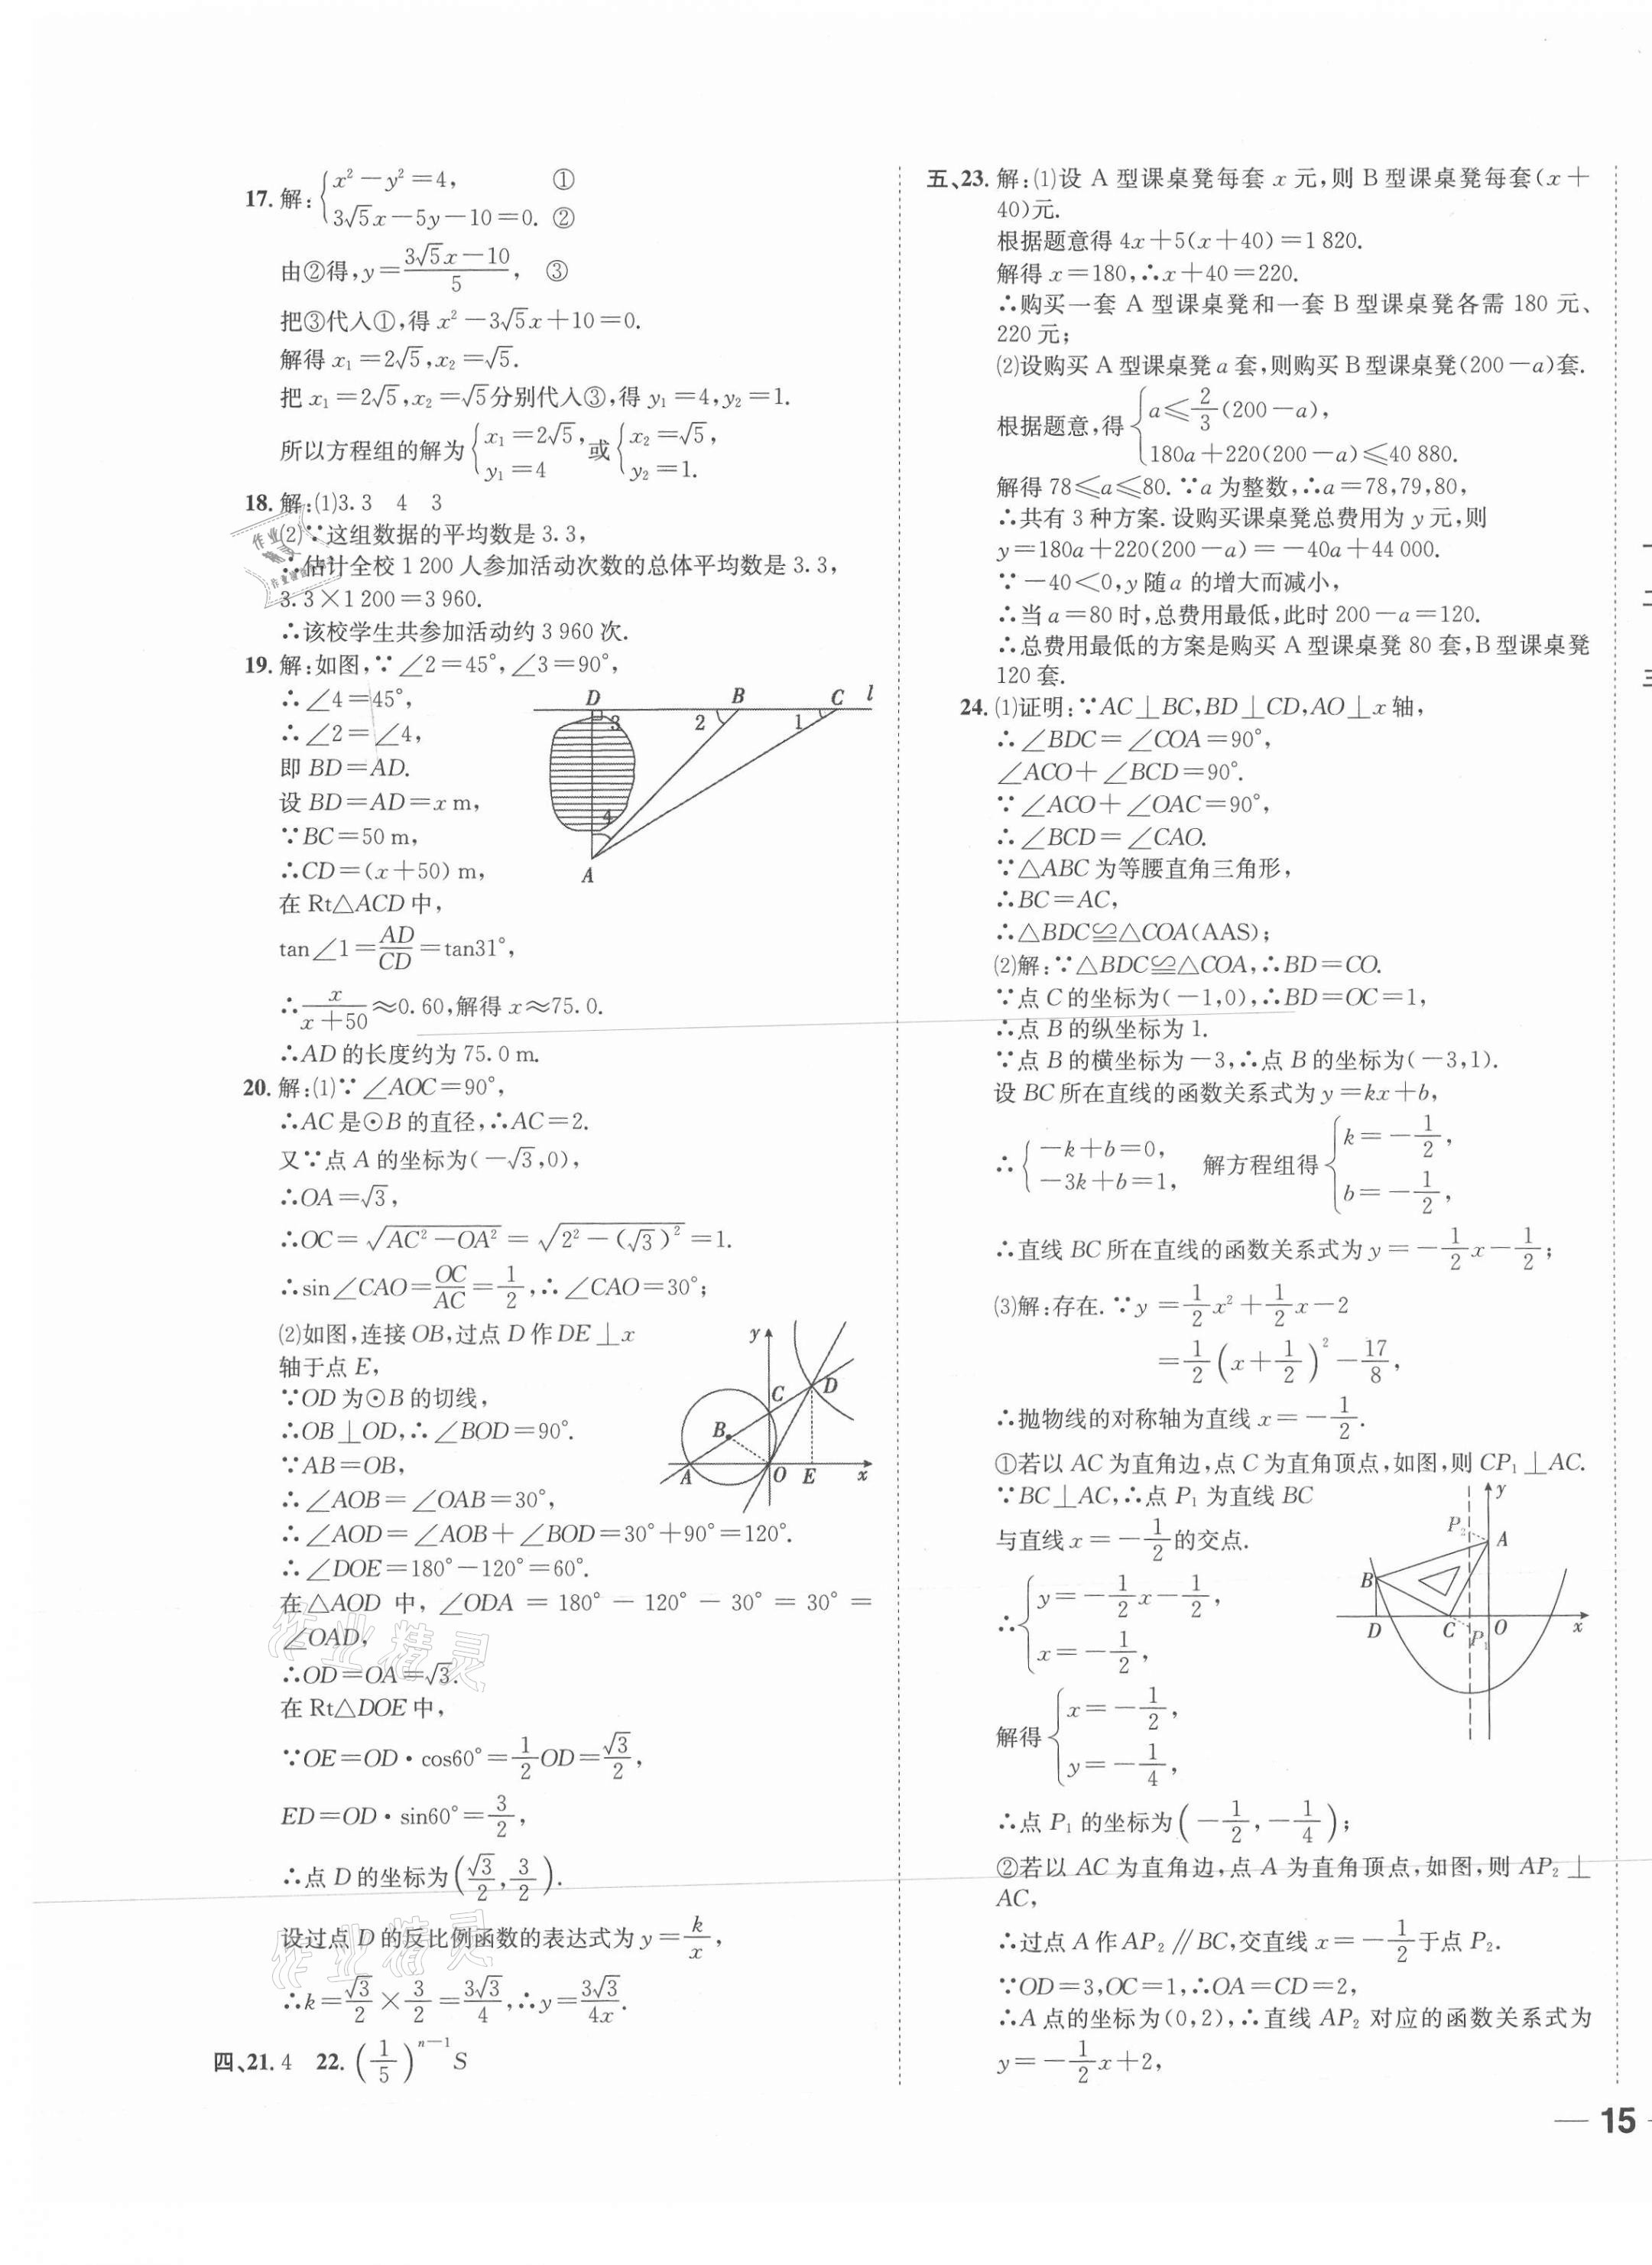 17. 解:{x²-y²=4, ①
3√5x-5y-10=0. ②
由②得,y=(3√5x-10)/5, ③
把③代入①,得 x²-3√5x+10=0.
解得 x₁=2√5,x₂=√5.
把 x₁=2√5,x₂=√5分别代入③,得 y₁=4,y₂=1.
所以方程组的解为{x₁=2√5, y₁=4 或{x₂=√5, y₂=1.
18. 解:(1)3.3 4 3
(2)∵这组数据的平均数是 3.3,
∴估计全校 1 200 人参加活动次数的总体平均数是 3.3,
3.3×1 200=3 960.
∴该校学生共参加活动约 3 960 次.
19. 解:如图,∵∠2=45°,∠3=90°,
∴∠4=45°,
∴∠2=∠4,
即 BD=AD.
设 BD=AD=x m,
∵BC=50 m,
∴CD=(x+50) m,
在 Rt△ACD 中,
tan∠1=AD/CD=tan31°,
∴x/(x+50)≈0.60,解得 x≈75.0.
∴AD 的长度约为 75.0 m.
D B C l
3 2 1
4
A
20. 解:(1)∵∠AOC=90°,
∴AC 是⊙B 的直径,∴AC=2.
又∵点 A 的坐标为(-√3,0),
∴OA=√3,
∴OC=√(AC²-OA²)=√(2²-(√3)²)=1.
∴sin∠CAO=OC/AC=1/2,∴∠CAO=30°;
(2)如图,连接 OB,过点 D 作 DE⊥x
轴于点 E,
∵OD 为⊙B 的切线,
∴OB⊥OD,∴∠BOD=90°.
∵AB=OB,
∴∠AOB=∠OAB=30°,
∴∠AOD=∠AOB+∠BOD=30°+90°=120°.
∴∠DOE=180°-120°=60°.
在△AOD 中,∠ODA=180°-120°-30°=30°=
∠OAD,
∴OD=OA=√3.
在 Rt△DOE 中,
∵OE=OD·cos60°=1/2OD=√3/2,
ED=OD·sin60°=3/2,
∴点 D 的坐标为(√3/2,3/2).
设过点 D 的反比例函数的表达式为 y=k/x,
∴k=√3/2×3/2=3√3/4,∴y=3√3/4x.
y
C D
B
A O E x
四、21. 4 22. (1/5)ⁿ⁻¹S
五、23. 解:(1)设 A 型课桌凳每套 x 元,则 B 型课桌凳每套(x+
40)元.
根据题意得 4x+5(x+40)=1 820.
解得 x=180,∴x+40=220.
∴购买一套 A 型课桌凳和一套 B 型课桌凳各需 180 元、
220 元;
(2)设购买 A 型课桌凳 a 套,则购买 B 型课桌凳(200-a)套.
根据题意,得{a≤2/3(200-a),
180a+220(200-a)≤40 880.
解得 78≤a≤80.∵a 为整数,∴a=78,79,80,
∴共有 3 种方案.设购买课桌凳总费用为 y 元,则
y=180a+220(200-a)=-40a+44 000.
∵-40<0,y 随 a 的增大而减小,
∴当 a=80 时,总费用最低,此时 200-a=120.
∴总费用最低的方案是购买 A 型课桌凳 80 套,B 型课桌凳
120 套.
24. (1)证明:∵AC⊥BC,BD⊥CD,AO⊥x 轴,
∴∠BDC=∠COA=90°,
∠ACO+∠BCD=90°.
∵∠ACO+∠OAC=90°,
∴∠BCD=∠CAO.
∵△ABC 为等腰直角三角形,
∴BC=AC,
∴△BDC≌△COA(AAS);
(2)解:∵△BDC≌△COA,∴BD=CO.
∵点 C 的坐标为(-1,0),∴BD=OC=1,
∴点 B 的纵坐标为 1.
∵点 B 的横坐标为-3,∴点 B 的坐标为(-3,1).
设 BC 所在直线的函数关系式为 y=kx+b,
∴{-k+b=0, -3k+b=1, 解方程组得{k=-1/2, b=-1/2,
∴直线 BC 所在直线的函数关系式为 y=-1/2x-1/2;
(3)解:存在.∵y=1/2x²+1/2x-2
=1/2(x+1/2)²-17/8,
∴抛物线的对称轴为直线 x=-1/2.
①若以 AC 为直角边,点 C 为直角顶点,如图,则 CP₁⊥AC.
∵BC⊥AC,∴点 P₁ 为直线 BC
与直线 x=-1/2的交点.
∴{y=-1/2x-1/2,
x=-1/2,
解得{x=-1/2,
y=-1/4,
∴点 P₁ 的坐标为(-1/2,-1/4);
y
P₂ A
B
D C P₁ O x
②若以 AC 为直角边,点 A 为直角顶点,如图,则 AP₂⊥
AC,
∴过点 A 作 AP₂∥BC,交直线 x=-1/2于点 P₂.
∵OD=3,OC=1,∴OA=CD=2,
∴A 点的坐标为(0,2),∴直线 AP₂ 对应的函数关系式为
y=-1/2x+2,
— 15 -
作业精灵
作业精灵